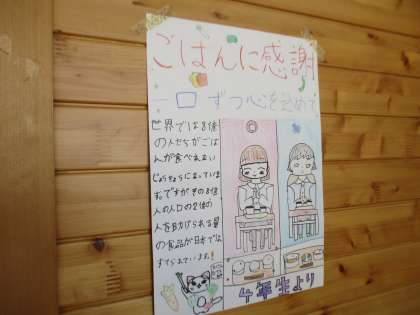 ごはんに感謝
一口ずつ心を込めて
世界では8億
の人たちがごは
んが食べれない
じょうきょうになっていま
す。ですがその8億
人の人口の2倍の
人を助けられる量
の食品が日本では
すてられています!
4年生より